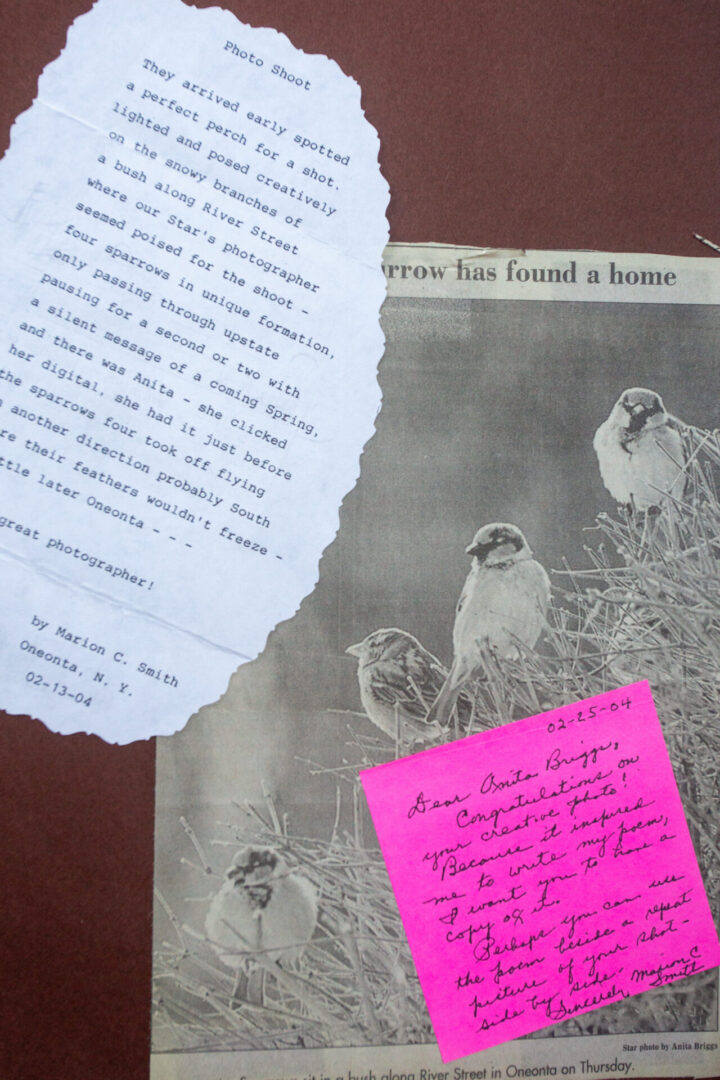 Photo Shoot
They arrived early spotted
a perfect perch for a shot.
lighted and posed creatively
on the snowy branches of
a bush along River Street
where our Star's photographer
seemed poised for the shoot -
four sparrows in unique formation,
only passing through upstate
pausing for a second or two with
a silent message of a coming Spring,
and there was Anita - she clicked
her digital, she had it just before
the sparrows four took off flying
another direction probably South
re their feathers wouldn't freeze -
ttle later Oneonta - - -
great photographer!
by Marion C. Smith
Oneonta, N. Y.
02-13-04
urrow has found a home
02-25-04
Dear Anita Briggs,
Congratulations on
your creative photo!
Because it inspired
me to write my poem,
I want you to have a
copy of it.
Perhaps you can use
the poem beside a repeat
picture of your shot-
side by side.
Sincerely, Marion C
Smith
Star photo by Anita Briggs
sit in a bush along River Street in Oneonta on Thursday.